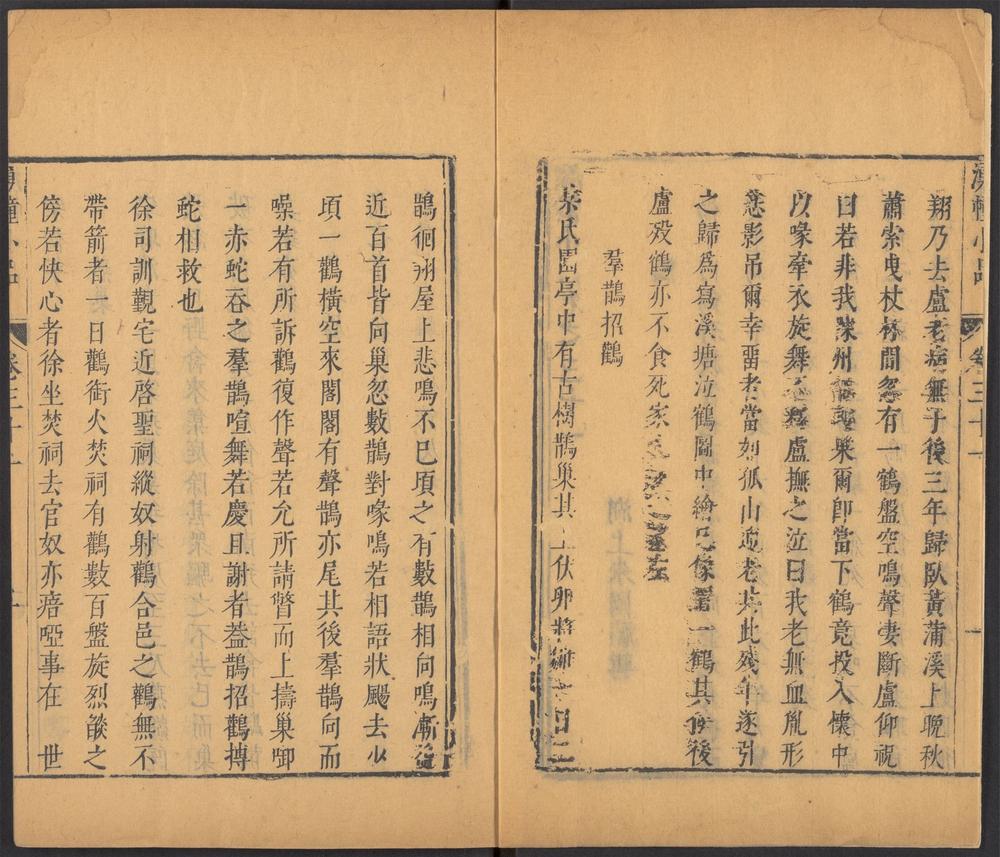 翔乃去盧老病無子後三年歸臥黃蒲溪上晚秋
蕭索曳杖林間忽有一鶴盤空鳴聲悽斷盧仰視
曰若非我陳州侶耶果爾即當下鶴竟投入懷中
以喙牽衣旋舞不釋盧撫之泣曰我老無血胤形
悲影吊爾幸留者當如孤山逋老共此殘年遂引
之歸為寫溪塘泣鶴圖中繪己像置一鶴其傍後
盧歿鶴亦不食死家
羣鵲招鸛
某氏園亭中有古樹鵲巢其上伏卵將
鵲徊翔屋上悲鳴不已頃之有數鵲相向鳴漸益
近百首皆向巢忽數鵲對喙鳴若相語狀颺去少
頃一鸛橫空來閣閣有聲鵲亦尾其後羣鵲向而
噪若有所訴鸛復作聲若允所請瞥而上擣巢啣
一赤蛇吞之羣鵲喧舞若慶且謝者葢鵲招鸛搏
蛇相救也
徐司訓觀宅近啓聖祠縱奴射鸛合邑之鸛無不
帶箭者一日鸛銜火焚祠有鸛數百盤旋烈燄之
傍若快心者徐坐焚祠去官奴亦瘖啞事在 世